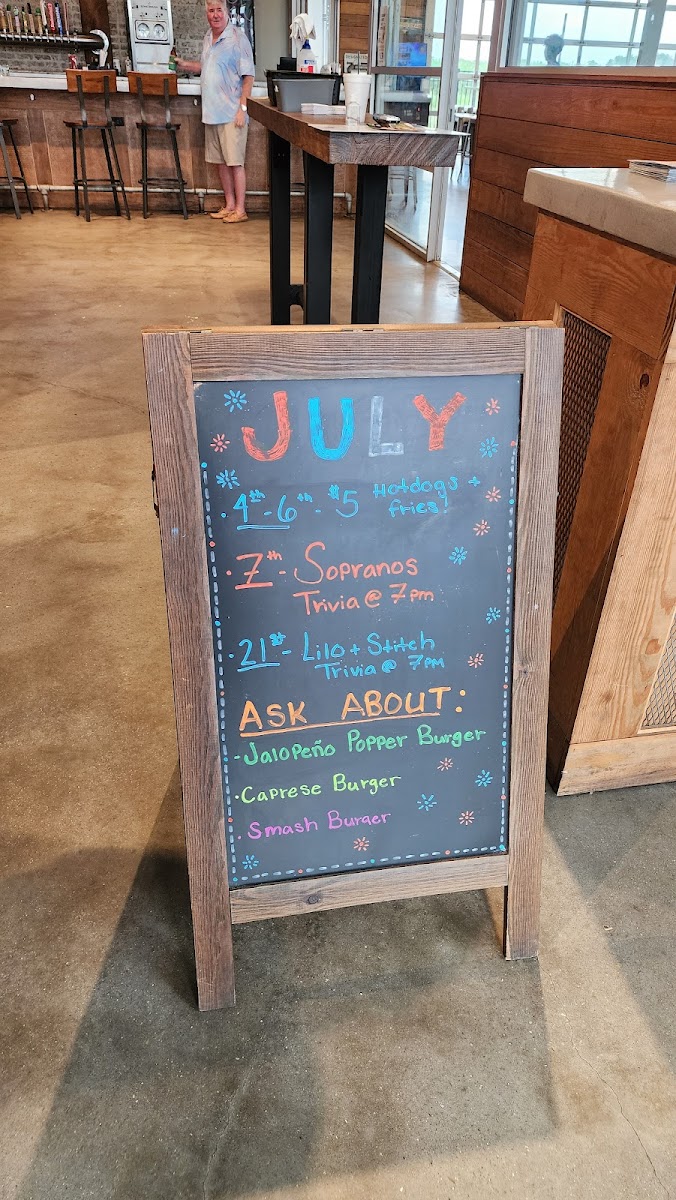 JULY
· 4th - 6th - $5 Hotdogs + fries!
· 7th - Sopranos
Trivia @ 7pm
· 21st - Lilo + Stitch
Trivia @ 7PM
ASK ABOUT:
- Jalopeño Popper Burger
· Caprese Burger
· Smash Burger